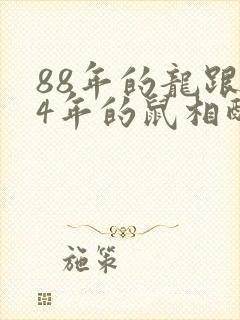 88年的龍跟
4年的鼠相
施策